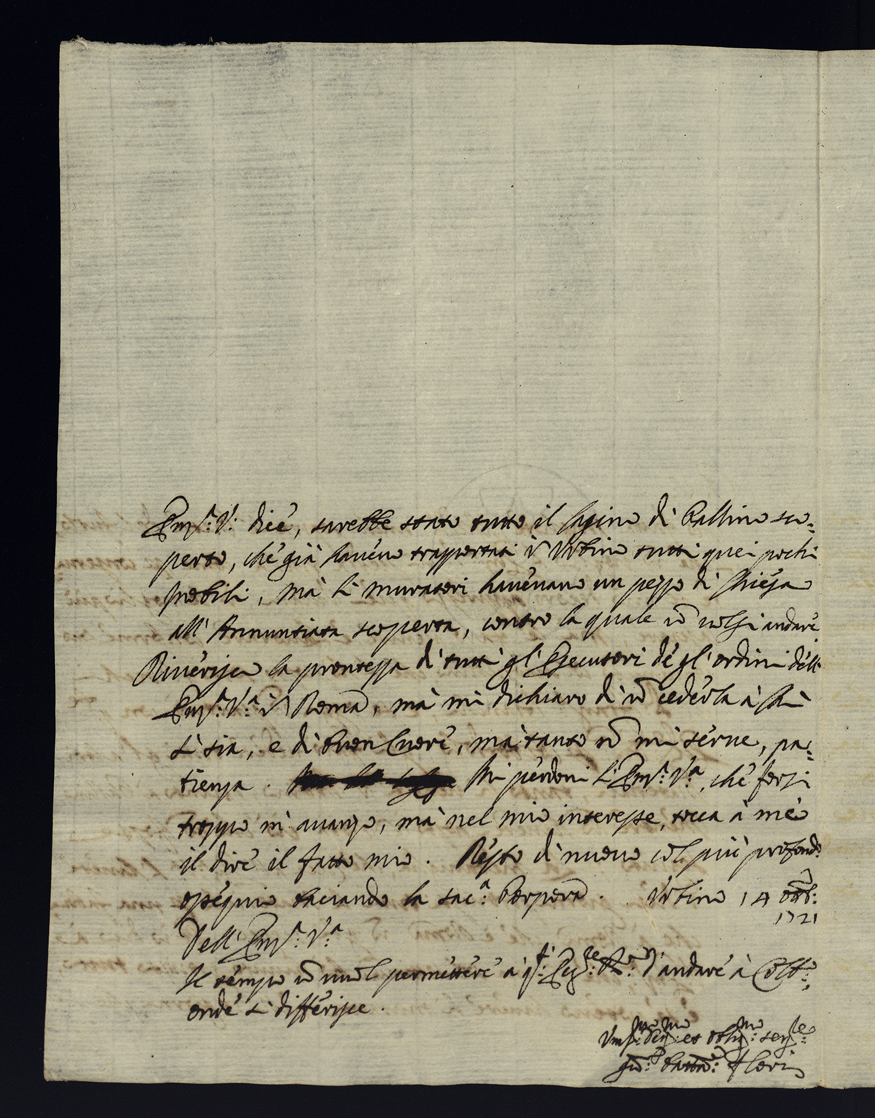 Em.ª V.ª dice, sarebbe stato tutto il casino di Gallino sco-
perto, che già havevo trapportati in Urbino tutti quei pochi
mobili, ma li muratori havevano un pezzo di Chiesa
all'Annuntiata scoperta, contro la quale non volsi andare
Riverisco la prontezza di tutti gl'Esecutori de gl'ordini dell'
Em.ª V.ª in Roma, ma mi dichiaro di non cederla à chi
si sia, e di buon Cuore, ma tanto non mi serve, pa-
tienza. Mi perdoni l'Em.ª V.ª, che forsi
troppo mi avanzo, ma nel mio interesse, tocca à me
il dire il fatto mio. Resto di nuovo col più profondo
ossequio baciando la sac.ª Porpora. Urbino 14 ottob:
1721
Dell'Em.ª V.ª
Il tempo non vuol permettere à d'andare à
onde si differisce.
Um.mo et obblig.mo ser.re
Gio: Batt.ª